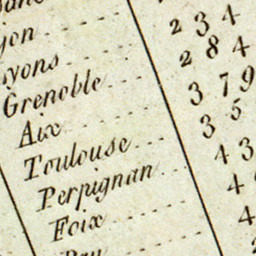 jon
yons 2 3 4
Grenoble 2 8 4
Aix 3 7 9
Toulouse 3 5
Perpignan 4 3
Foix 4
Pau 4